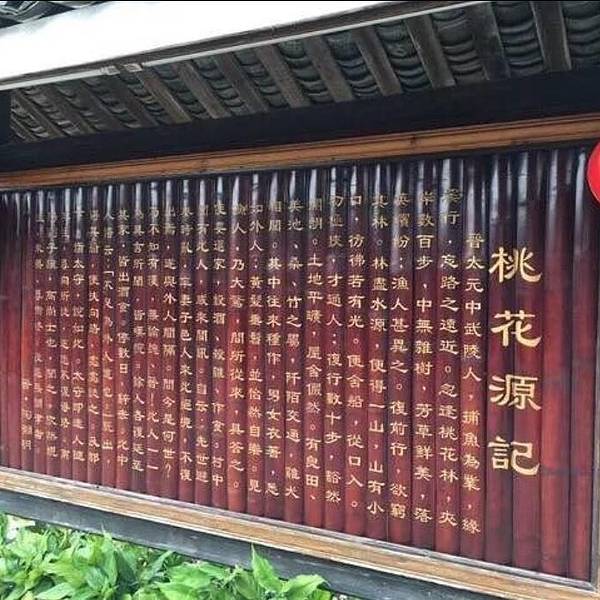 桃花源記
晉太元中武陵人,捕魚為業,緣
溪行,忘路之遠近。忽逢桃花林,夾
岸數百步,中無雜樹、芳草鮮美,落
英繽紛;漁人甚異之。復前行,欲窮
其林。林盡水源,便得一山,山有小
口,彷彿若有光。便舍船,從口入。
初極狹,才通人;復行數十步,豁然
開朗。土地平曠,屋舍儼然。有良田、
美池、桑、竹之屬,阡陌交通,雞犬
相聞。其中往來種作,男女衣著,悉
如外人;黃髮垂髫,並怡然自樂。見
漁人,乃大驚,問所從來,具答之。
便要還家,設酒、殺雞、作食。村中
聞有此人,咸來問訊。自云:先世避
秦時亂,率妻子邑人來此絕境,不復
出焉,遂與外人間隔。問今是何世?
乃不知有漢,無論魏、晉!此人一一
為具言所聞,皆嘆惋。餘人各復延至
其家,皆出酒食。停數日,辭去。此中
人語云:「不足為外人道也!」既出,
得其船,便扶向路,處處誌之。及郡
下,詣太守,說如此。太守即遣人隨
其往,尋向所誌,遂迷不復得路。南
陽劉子驥,高尚士也,聞之,欣然規
晉‧陶淵明